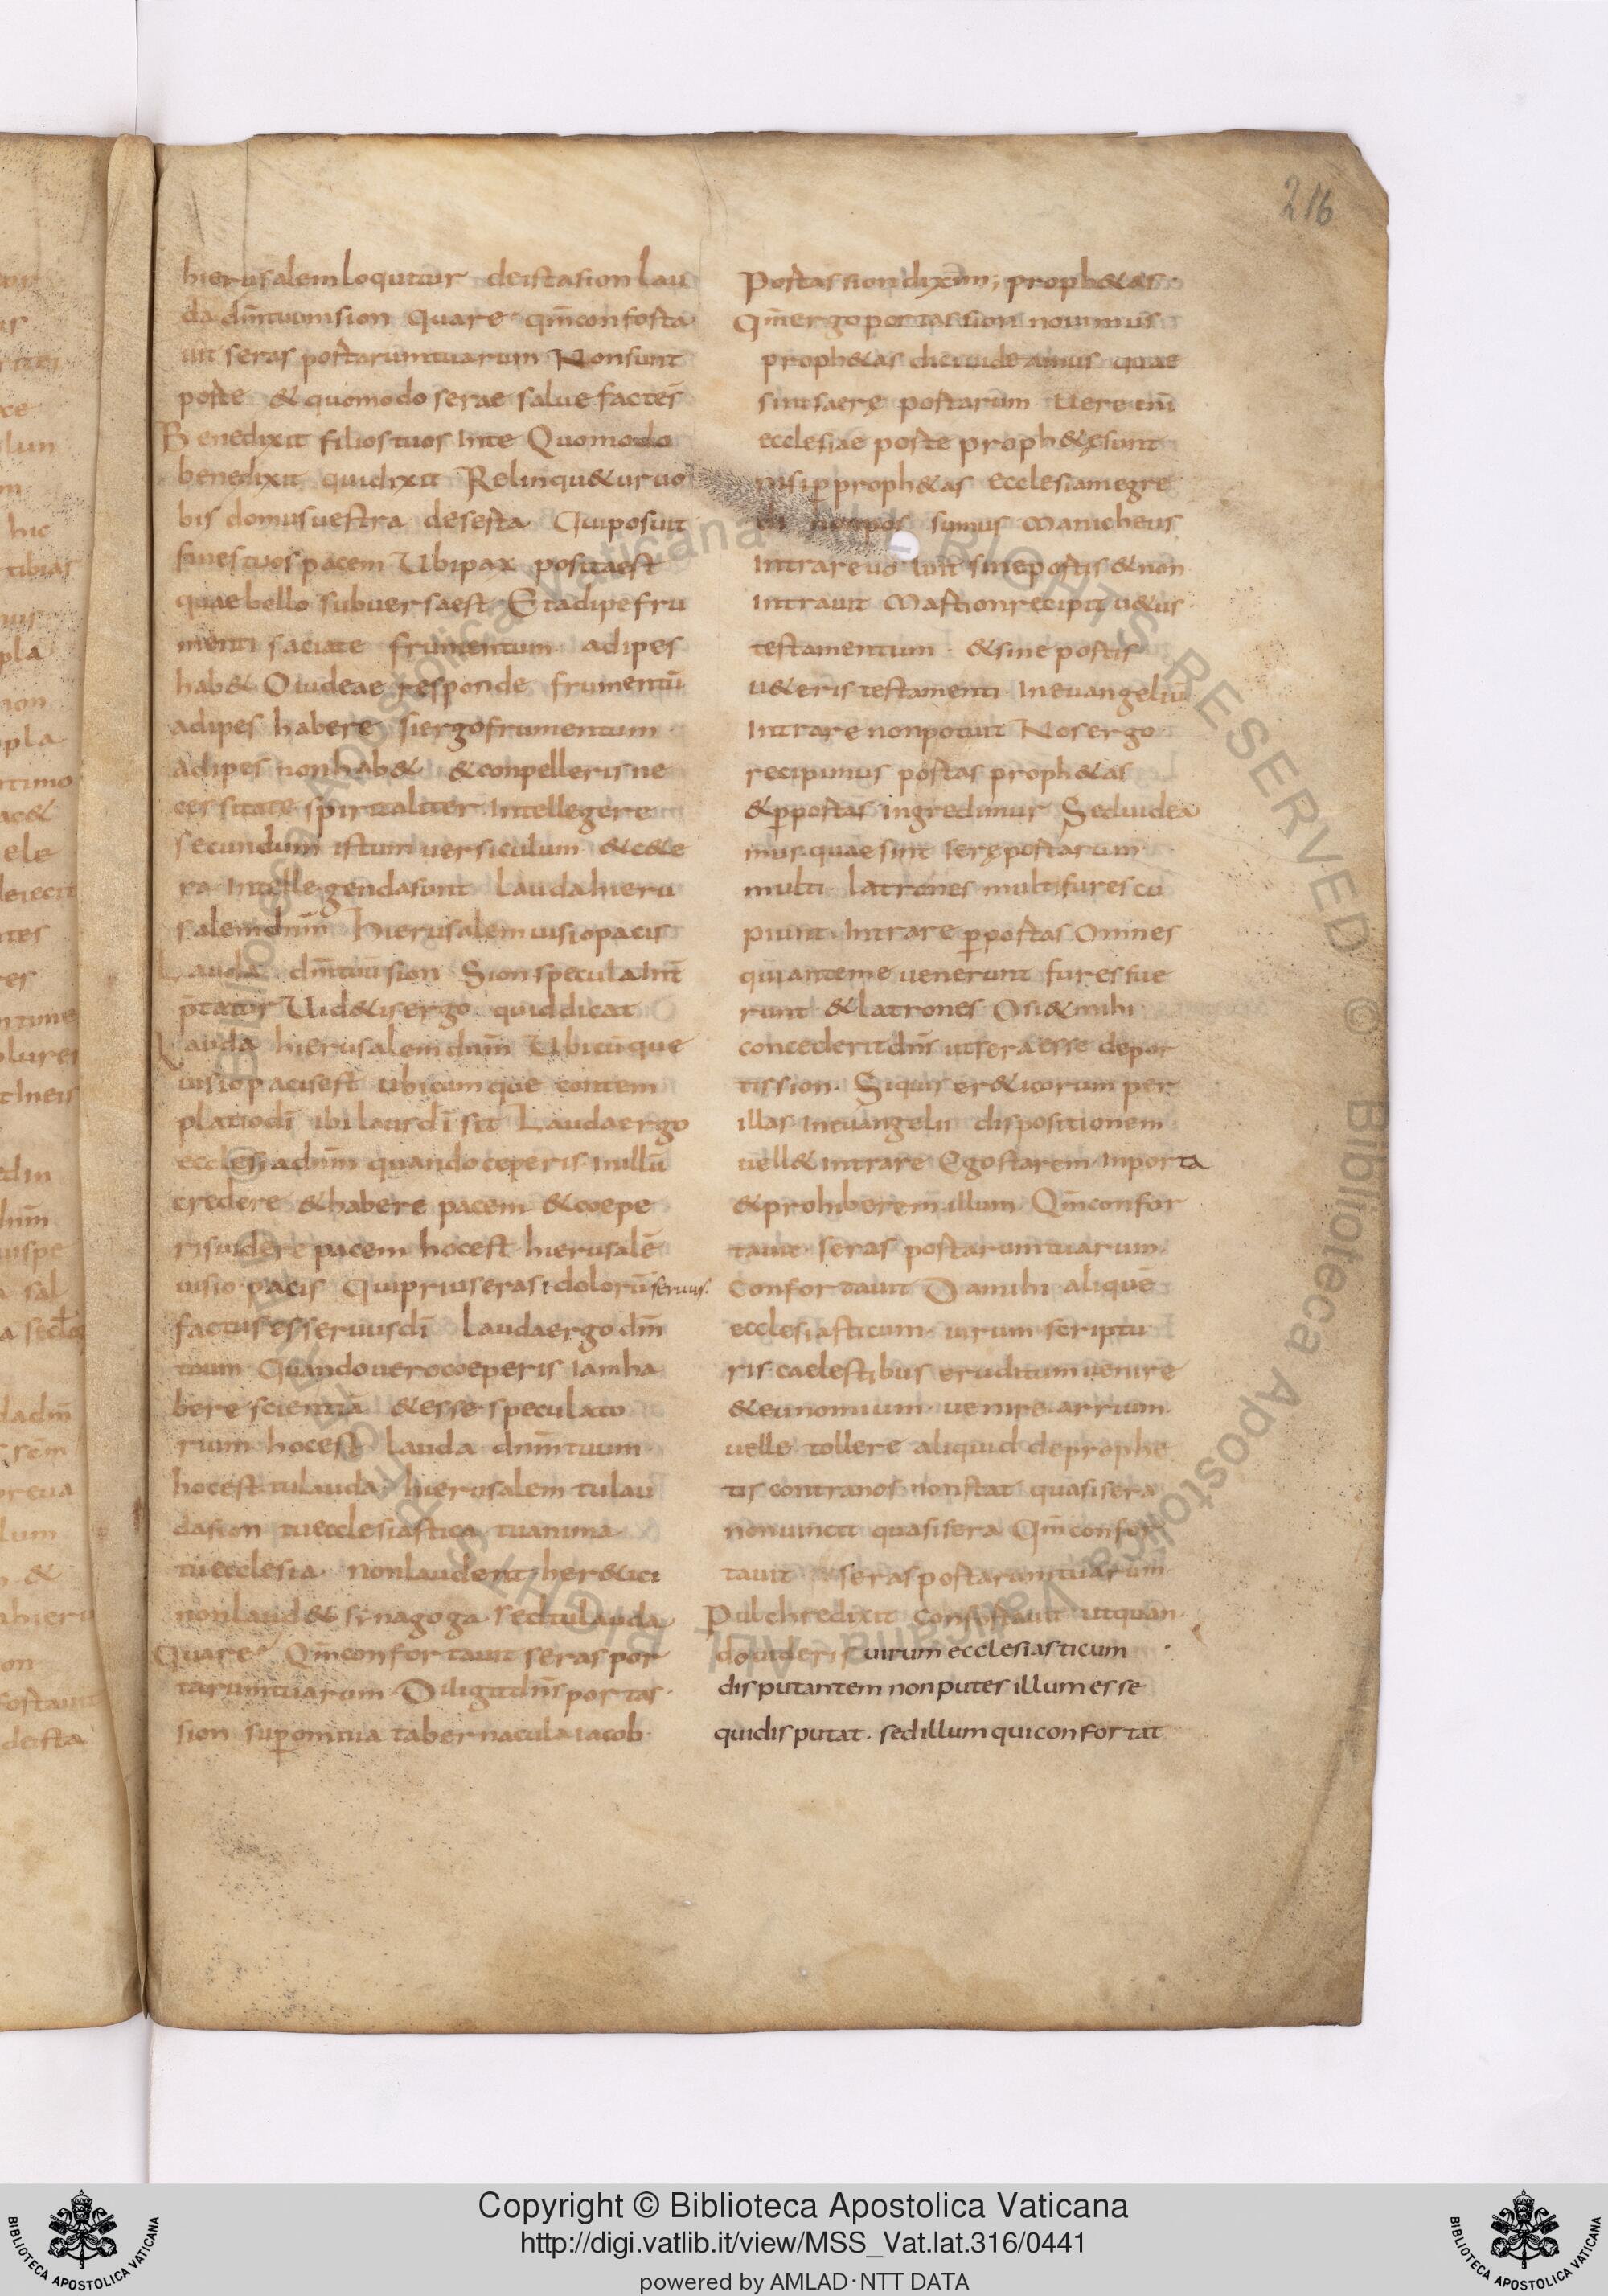 216
hierusalem loquitur de ista sion lau
da dm̄ tuum sion Quare qm̄ conforta
uit seras portarum tuarum Non sunt
porte & quomodo serae salue factes̄
Benedixit filios tuos inte Quomodo
benedixit qui dixit Relinqu&ur uo
bis domus uestra deserta Qui posuit
fines tuos pacem Ubi pax posita est
quae bello subuersa est Et adipe fru
menti saciate frumentum adipes
hab& O iudeae responde frumentū
adipes habere si ergo frumentum
adipes non hab& & conpelleris ne
cessitate spiritaliter intellegere
secundum istum uersiculum & c&e
ra intellegenda sunt Lauda hieru
salem dnm̄ hierusalem uisio pacis
Lauda dm̄ tuū sion Sion specula int̄
p̄tatur Uid&is ergo quid dicat
Lauda hierusalem dnm̄ Ubicūque
uisio pacis est ubicumque contem
platio dī ibi laus dī sit Lauda ergo
ecclesia dnm̄ quando ceperis inillū
credere & habere pacem & coepe
ris uidere pacem hoc est hierusalē
uisio pacis Qui prius eras idolorū seruus
factus es seruus dī Lauda ergo dm̄
tuum Quando uero coeperis iam ha
bere scientiā & esse speculato
rium hoc est lauda dnm̄ tuum
hoc est tu lauda hierusalem tu lau
da sion tu ecclesiastica tu anima
tu ecclesia non laudent her&ici
non laud& synagoga sed tu lauda
Quare Qm̄ confortauit seras por
tarum tuarum Diligit dn̄s portas
sion sup̄ omnia tabernacula iacob
Portas sion diximus proph&as
Qm̄ ergo portas sion nouimus
proph&as dici uideamus quae
sint saere portarum Uere enī
ecclesiae porte proph&e sunt
nisi p̄ proph&as ecclesiam egre
di non pos sumus Manicheus
intrare uoluit sine portis & non
intrauit Martion recipit u&us
testamentum & sine portis
u&eris testamenti in euangeliū
intrare non potuit Nos ergo
recipimus portas proph&as
& p̄ portas ingredimur Sed uidea
mus quae sint sere portarum
multi latrones multi fures cu
piunt intrare p̄ portas Omnes
qui ante me uenerunt fures fue
runt & latrones O si & mihi
concederit dn̄s ut sera esse de por
tis sion Si quis er&icorum per
illas in euangelii dispositionem
uell& intrare Ego starem in porta
& prohiberem illum Qm̄ confor
tauit seras portarum tuarum
Confortauit Da mihi aliquē
ecclesiasticum uirum scriptu
ris caelestibus eruditum uenire
& eunomium uenire arrium
uelle tollere aliquid de prophe
tis contra nos non stat quasi sera
non uincit quasi sera Qm̄ confor
tauit seras portarum tuarum
Pulchre dixit confortauit ut quan
do uideris uirum ecclesiasticum
disputantem non putes illum esse
qui disputat. sed illum qui confortat
Copyright © Biblioteca Apostolica Vaticana
http://digi.vatlib.it/view/MSS_Vat.lat.316/0441
powered by AMLAD·NTT DATA
BIBLIOTECA APOSTOLICA VATICANA
BIBLIOTECA APOSTOLICA VATICANA